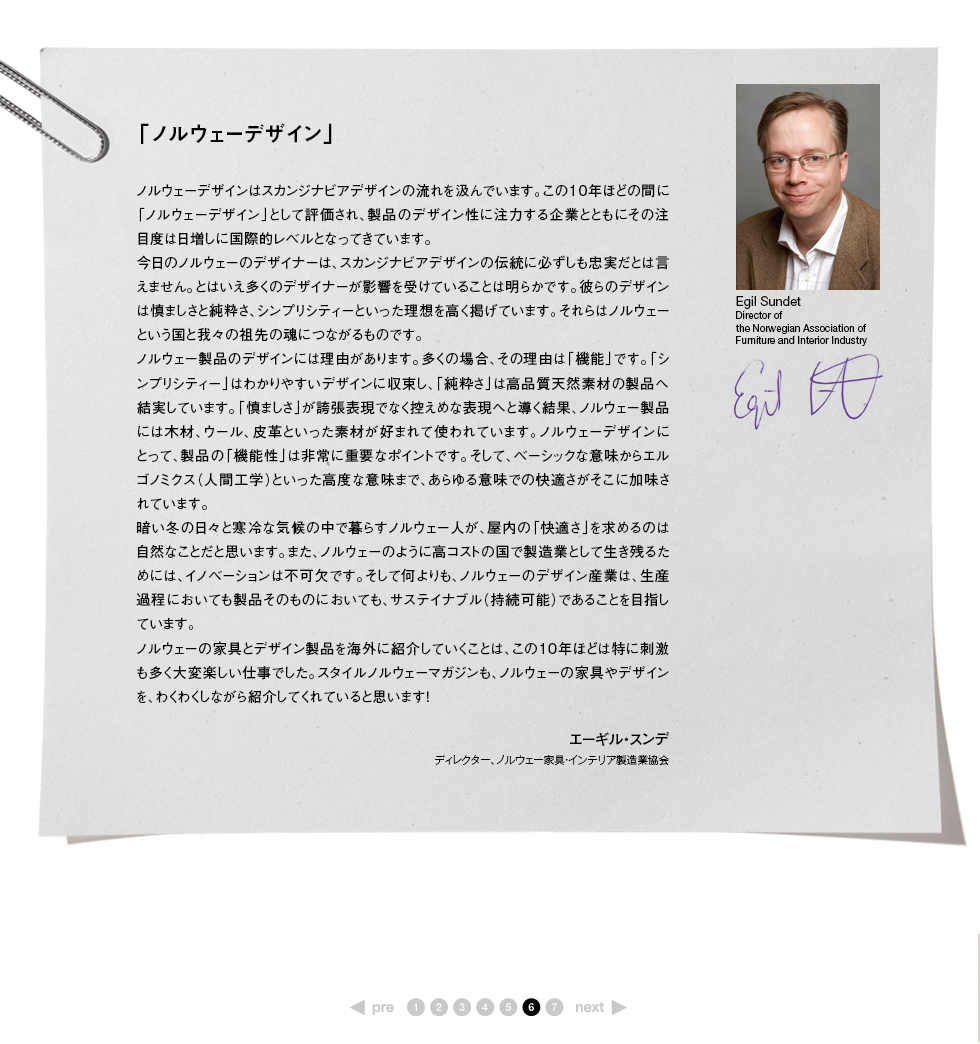 「ノルウェーデザイン」
ノルウェーデザインはスカンジナビアデザインの流れを汲んでいます。この10年ほどの間に
「ノルウェーデザイン」として評価され、製品のデザイン性に注力する企業とともにその注
目度は日増しに国際的レベルとなってきています。
今日のノルウェーのデザイナーは、スカンジナビアデザインの伝統に必ずしも忠実だとは言
えません。とはいえ多くのデザイナーが影響を受けていることは明らかです。彼らのデザイン
は慎ましさと純粋さ、シンプリシティーといった理想を高く掲げています。それらはノルウェー
という国と我々の祖先の魂につながるものです。
ノルウェー製品のデザインには理由があります。多くの場合、その理由は「機能」です。「シ
ンプリシティー」はわかりやすいデザインに収束し、「純粋さ」は高品質天然素材の製品へ
結実しています。「慎ましさ」が誇張表現でなく控えめな表現へと導く結果、ノルウェー製品
には木材、ウール、皮革といった素材が好まれて使われています。ノルウェーデザインに
とって、製品の「機能性」は非常に重要なポイントです。そして、ベーシックな意味からエル
ゴノミクス（人間工学）といった高度な意味まで、あらゆる意味での快適さがそこに加味さ
れています。
暗い冬の日々と寒冷な気候の中で暮らすノルウェー人が、屋内の「快適さ」を求めるのは
自然なことだと思います。また、ノルウェーのように高コストの国で製造業として生き残るた
めには、イノベーションは不可欠です。そして何よりも、ノルウェーのデザイン産業は、生産
過程においても製品そのものにおいても、サステイナブル（持続可能）であることを目指し
ています。
ノルウェーの家具とデザイン製品を海外に紹介していくことは、この10年ほどは特に刺激
も多く大変楽しい仕事でした。スタイルノルウェーマガジンも、ノルウェーの家具やデザイン
を、わくわくしながら紹介してくれていると思います!
エーギル・スンデ
ディレクター、ノルウェー家具・インテリア製造業協会
Egil Sundet
Director of
the Norwegian Association of
Furniture and Interior Industry
Egil
pre 1 2 3 4 5 6 7 next